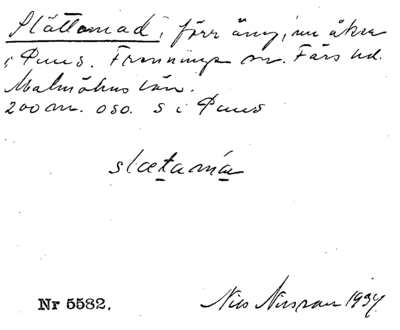 Slättamad, förr äng, nu åker
i Fuus. Frenninge sn. Färs hd.
Malmöhus län.
200 m. oso. s i Fuus
slætamá
Nr 5582.
Nils Nilsson 1934